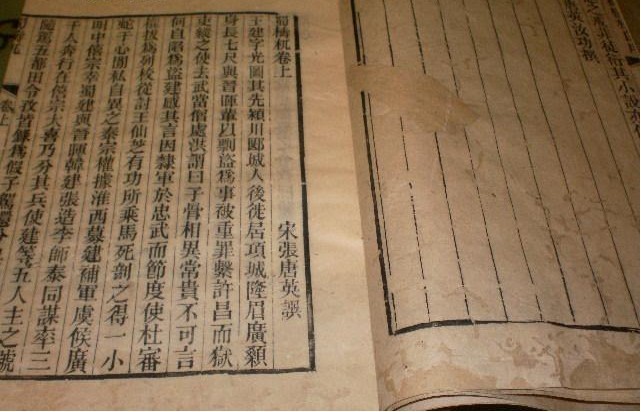 蜀檮杌卷上
宋張唐英譔
王建字光圖其先潁川郾城人後徙居項城隆眉廣顙
身長七尺與晉暉輩以剽盜爲事被重罪繫許昌而獄
吏縱之使去武當僧處洪謂曰子骨相異常貴不可言
何自陷爲盜建感其言因隸軍於忠武而節度使杜審
權拔爲列校從討王仙芝有功所乘馬死剖之得一小
蛇于心閒私自異之秦宗權據淮西募建補軍虞候廣
明中僖宗幸蜀建與晉暉韓建張造李師泰同謀率三
千人奔行在僖宗大喜乃分其兵使建等五人主之號
隨駕五都田令孜皆錄爲假子駕還分
卷上